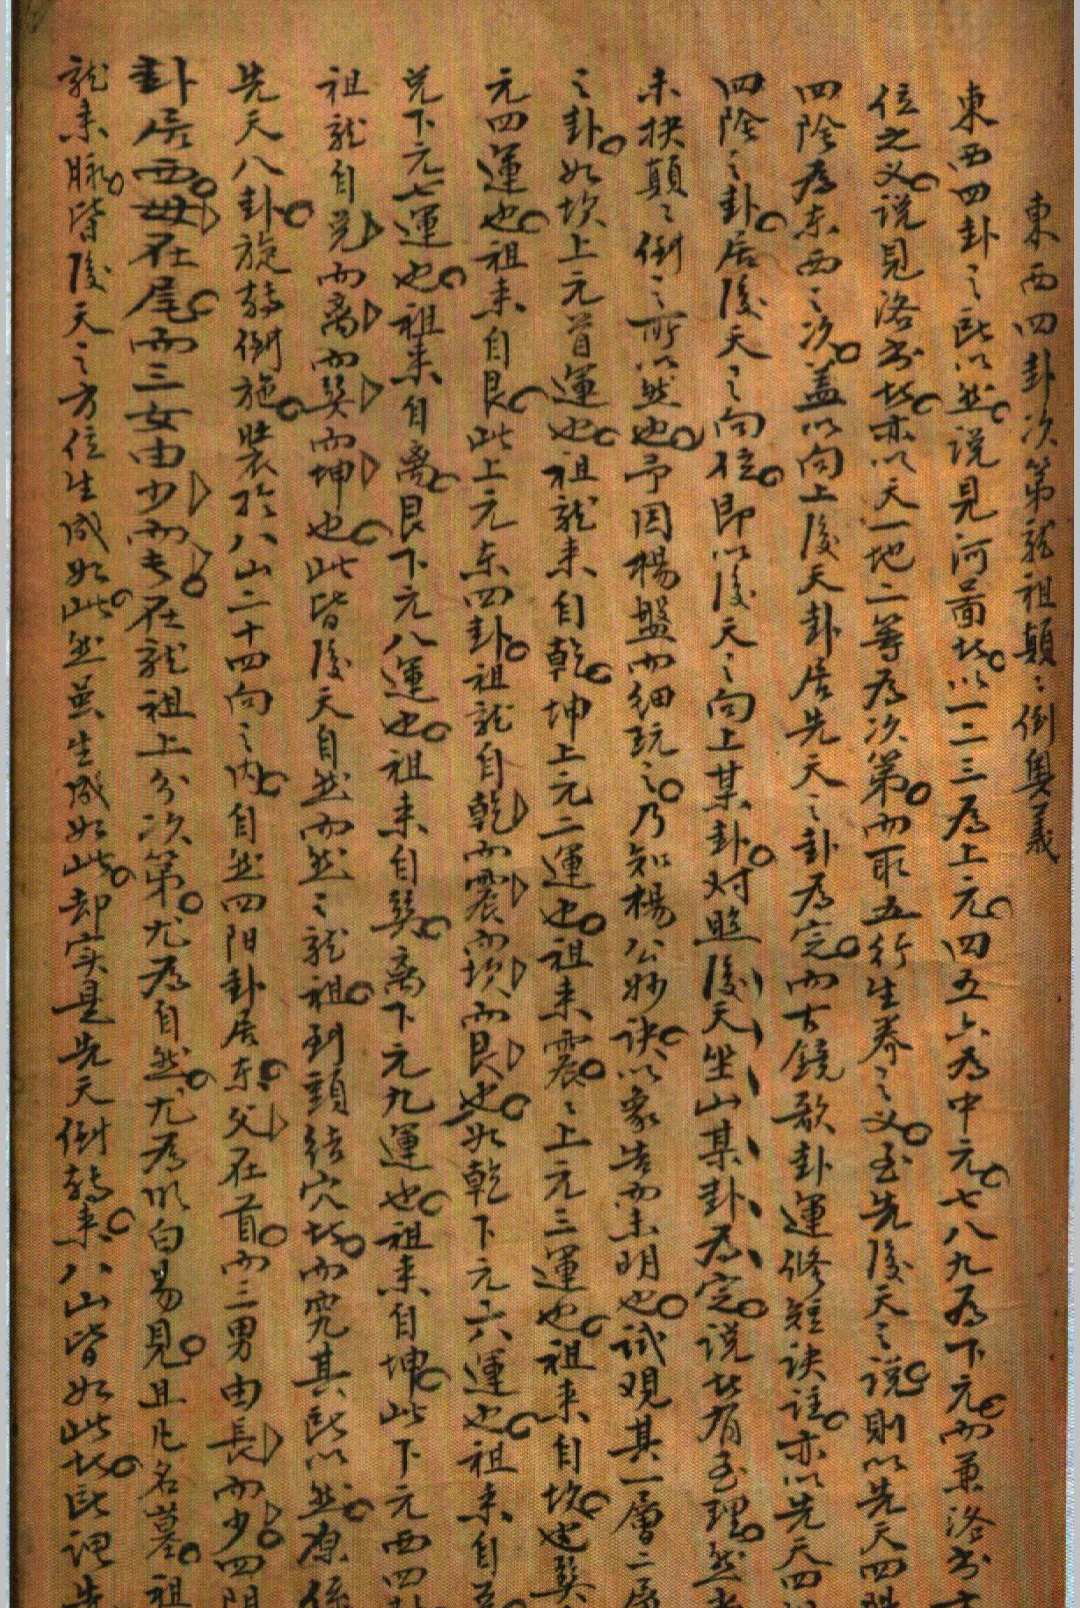 東西四卦次第龍祖顛〻倒奧義
東西四卦之所以然說見河圖故以一二三為上元四五六為中元七八九為下元而兼洛書方
位之义說見洛书故亦以天一地二等為次第而取五行生养之义至先後天之說則以先天四陽
四陰為东西之次盖以向上後天卦居先天之卦為定而古鏡歌卦運修短訣註亦以先天四
四陰之卦居後天之向位即以後天之向上某卦对照後天坐山某卦為定說此有至理然
未抉顛〻倒之所以然也予因楊盤而细玩之乃知楊公妙訣以象告而未明也試观其一層二层
之卦如坎上元首運也祖龍来自乾坤上元二運也祖来震〻上元三運也祖来自坎也巽
元四運也祖来自艮此上元东四卦祖龍自乾而震而坎而艮也如乾下元六運也祖来自
兌下元七運也祖来自离艮下元八運也祖来自巽离下元九運也祖来自坤此下元西四卦
祖龍自兌而离而巽而坤也此皆後天自然而然〻龍祖到頭結穴故而究其所以然原係
先天八卦旋轉倒施裝於八山二十四向之内自然四阳卦居东父在首而三男由長而少四阴
卦居西母在尾而三女由少而長在龍祖上分次第尤為自然尤為明白易見且凡名墓祖
龍来脉皆後天之方位生成如此然虽生成如此却实是先天倒轉来八山皆如此故所谓先